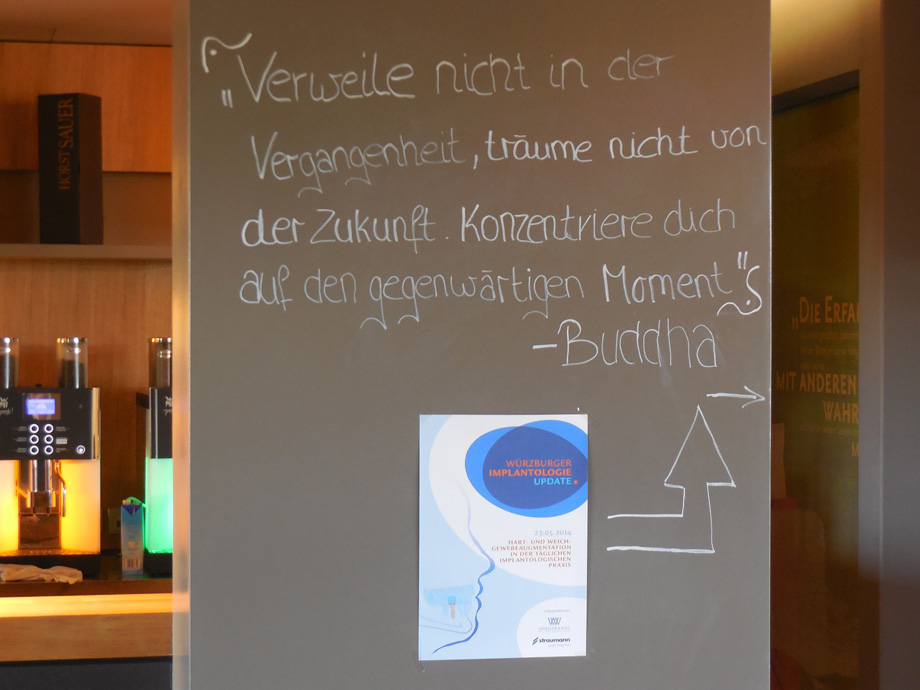 „Verweile nicht in der
Vergangenheit, träume nicht von
der Zukunft. Konzentriere dich
auf den gegenwärtigen Moment"
-Buddha
HORST SAUER
„DIE ERFA
MIT ANDEREN
WAHR
WÜRZBURGER
IMPLANTOLOGIE
UPDATE.
23.05.2014
HART- UND WEICH-
GEWEBEAUGMENTATION
IN DER TÄGLICHEN
IMPLANTOLOGISCHEN
PRAXIS
straumann